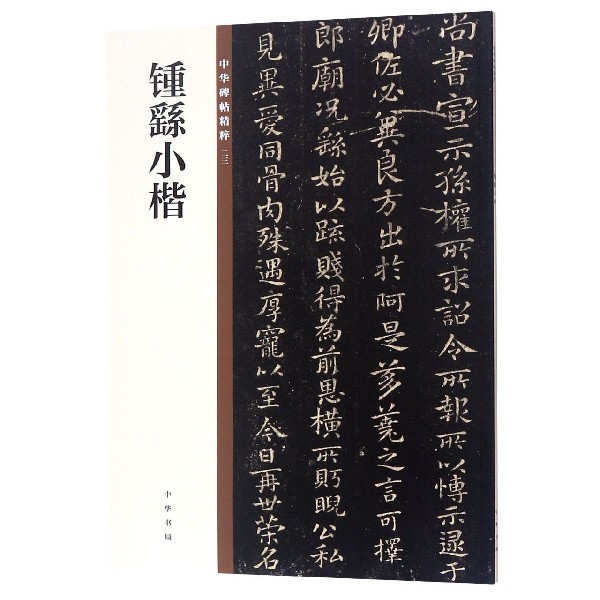 锺繇小楷
中华书局
中华碑帖精粹 二三
尚書宣示孫權所求詔令所報所以愽示逮于
卿佐必兾良方出於阿是芻蕘之言可擇
郎廟況繇始以疏賤得為前恩橫所盻睨公私
見異愛同骨肉殊遇厚寵以至今日再世榮名